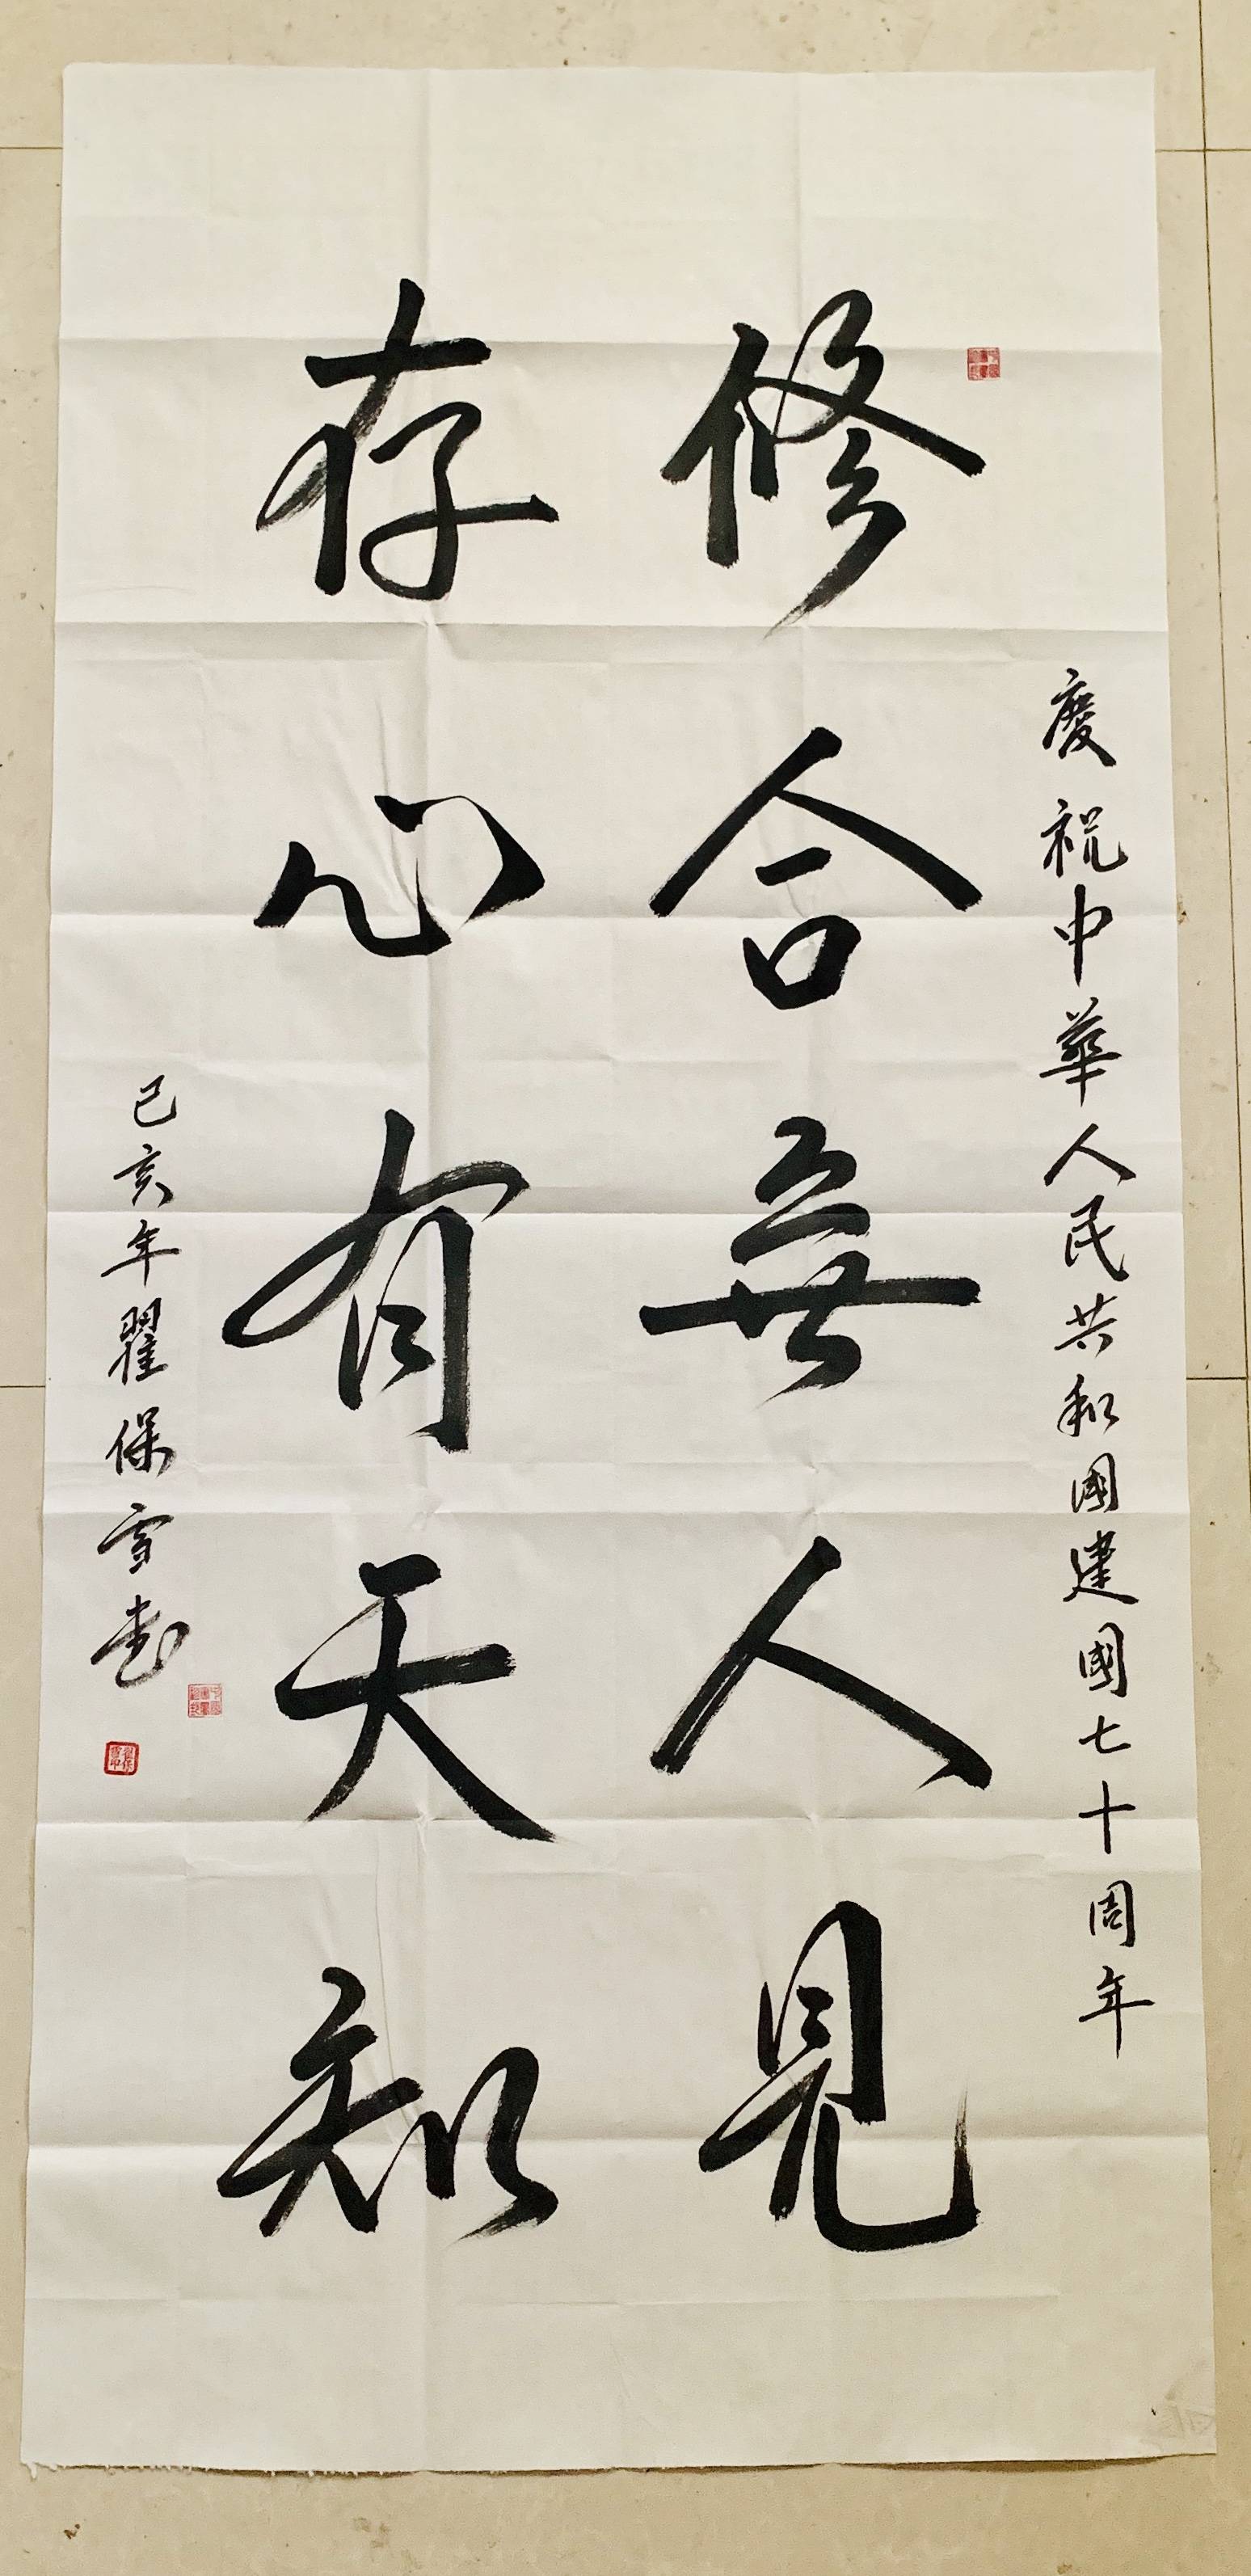 慶祝中華人民共和國建國七十周年
修合無人見
存心有天知
己亥年瞿保雪書